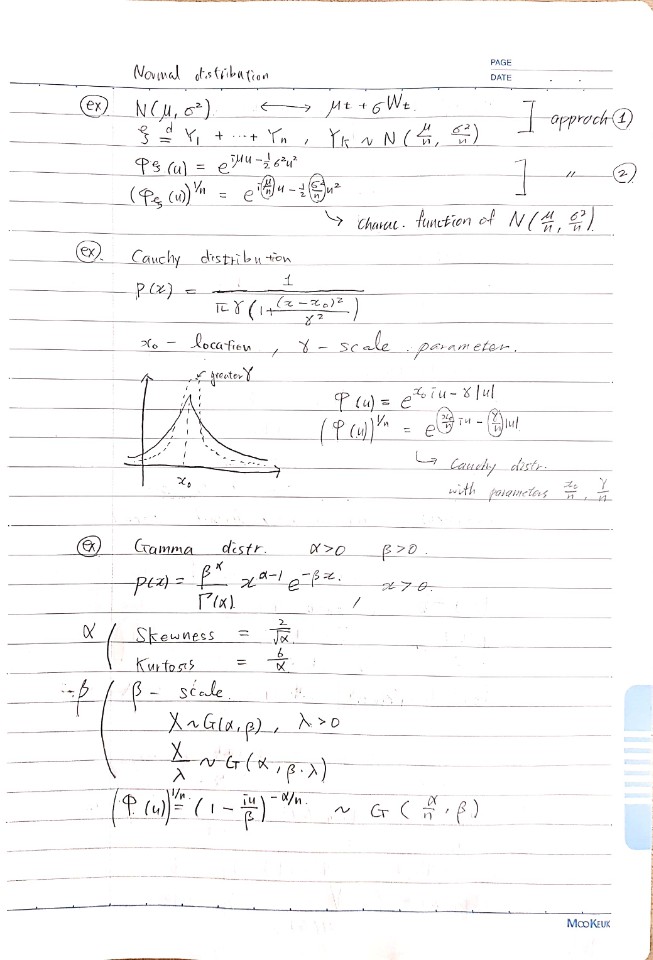 PAGE
DATE
Normal distribution
ex N(μ, σ²) ⟷ μt + σWt
ξ =ᵈ Y₁ + ⋯ + Yₙ , Yₖ ~ N(μ/n, σ²/n) ] approch ①
φ_ξ(u) = e^{iμu - ½σ²u²}
(φ_ξ(u))^{1/n} = e^{i(μ/n)u - ½(σ²/n)u²} ] 〃 ②
↳ charac. function of N(μ/n, σ²/n).
ex. Cauchy distribution
P(x) = 1 / (πγ(1 + (x - x₀)²/γ²))
x₀ - location , γ - scale parameter.
greater γ
φ(u) = e^{x₀iu - γ|u|}
(φ(u))^{1/n} = e^{(x₀/n)iu - (γ/n)|u|}
x₀
↳ Cauchy distr.
with parameters x₀/n , γ/n
ex Gamma distr. α>0 β>0.
P(x) = β^α/Γ(α) x^{α-1} e^{-βx}. , x>0.
α ( Skewness = 2/√α
Kurtosis = 6/α
β ( β - scale.
X ~ G(α, β) , λ>0
X/λ ~ G(α, β·λ)
(φ(u))^{1/n} = (1 - iu/β)^{-α/n} ~ G(α/n, β)
MOOKEUK